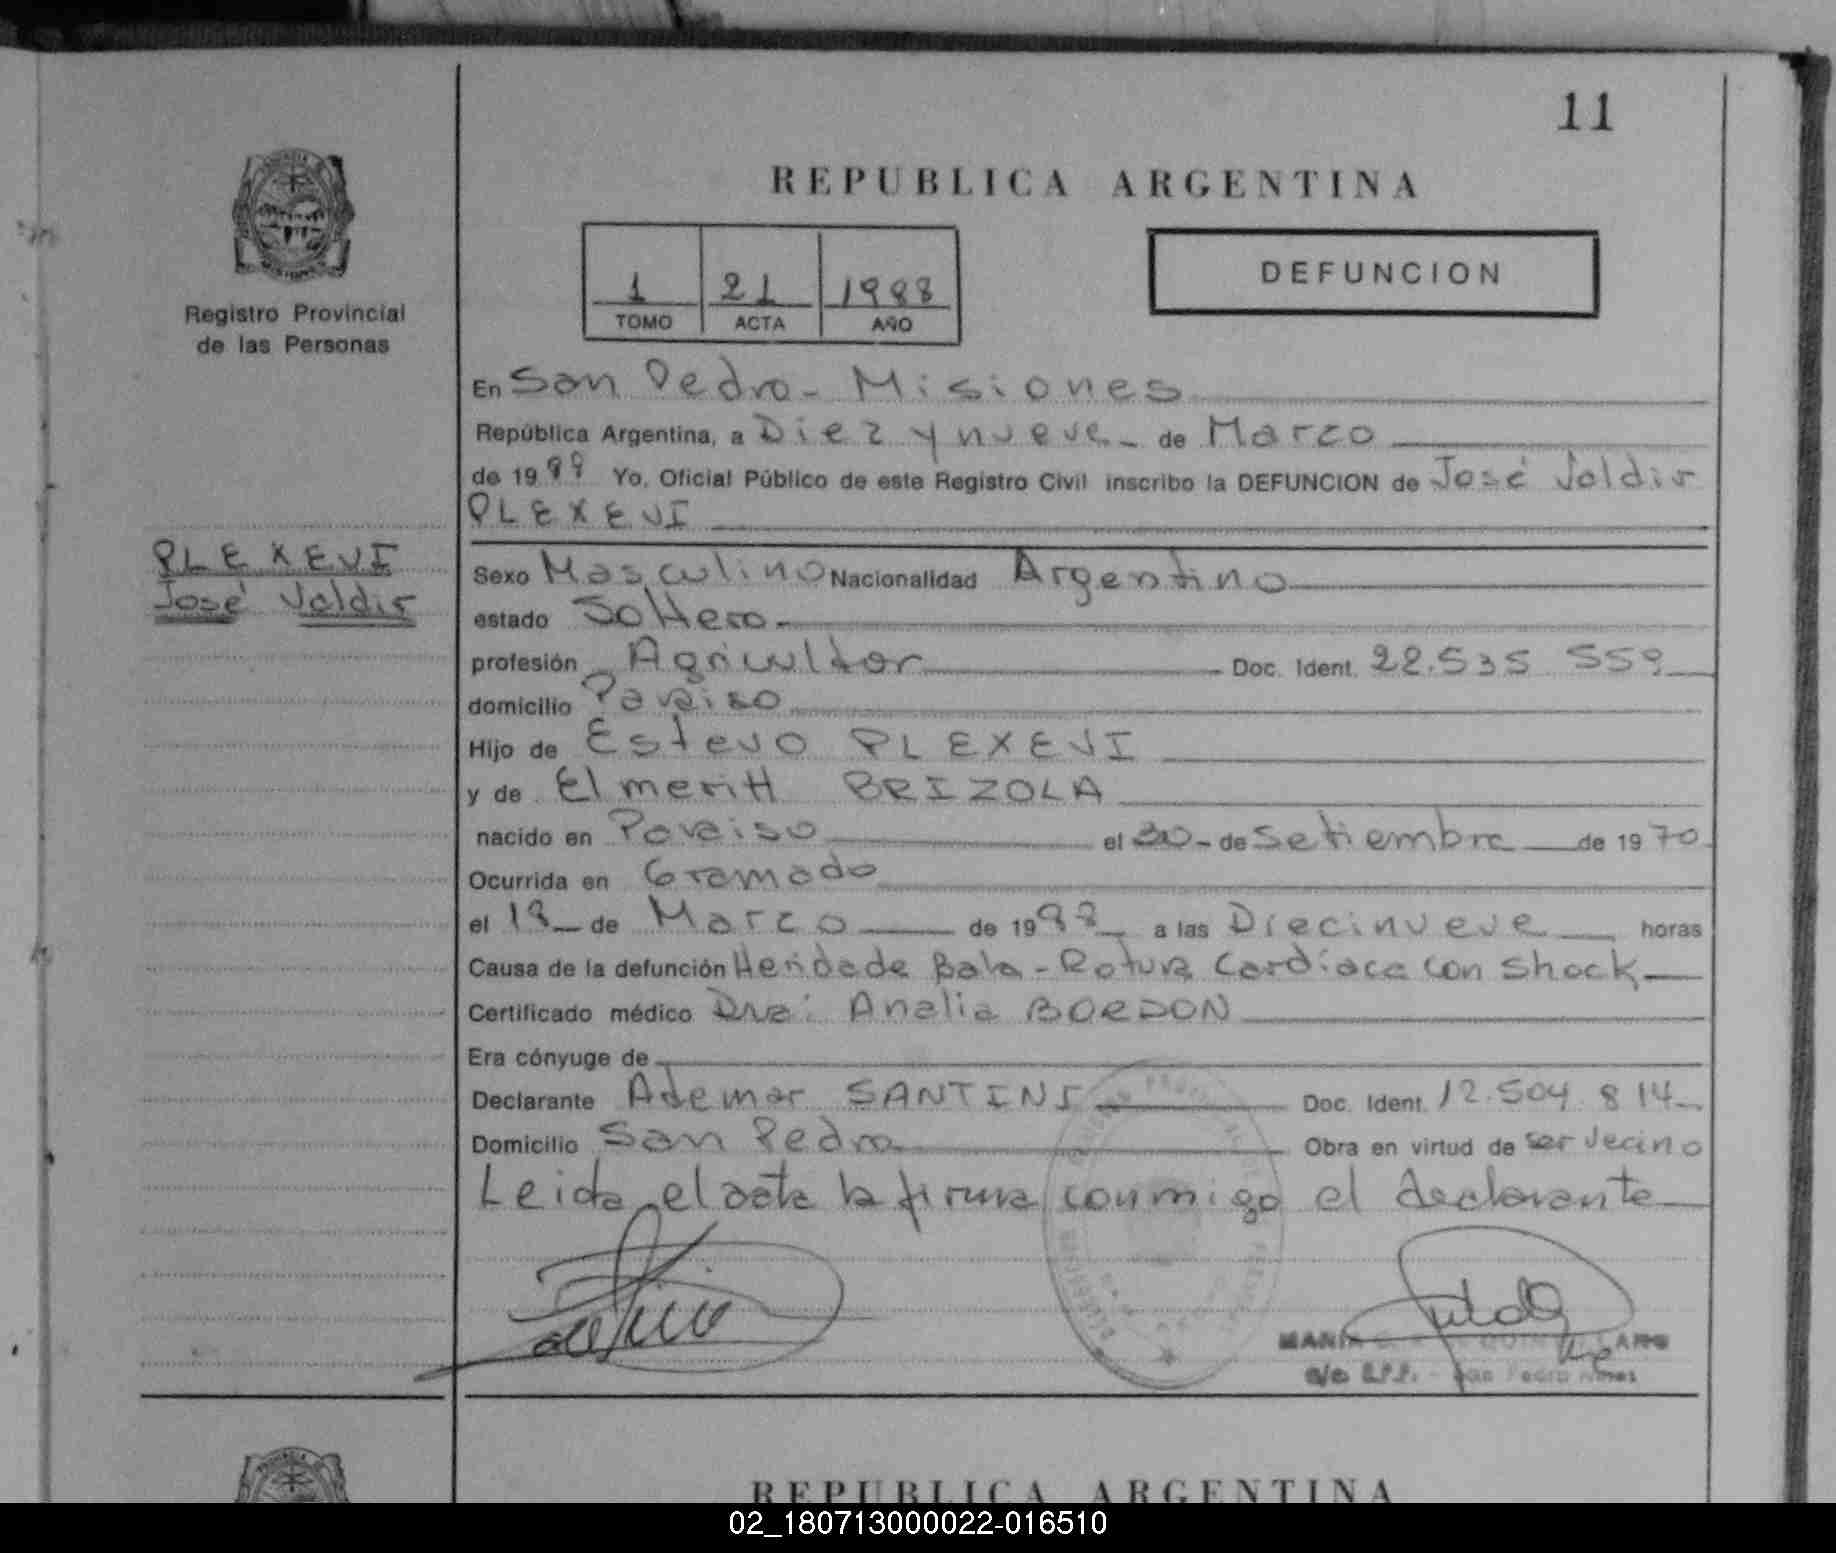 11
REPUBLICA ARGENTINA
1 21 1988
TOMO ACTA AÑO
DEFUNCION
Registro Provincial
de las Personas
En San Pedro - Misiones
República Argentina, a Diez y nueve - de Marzo
de 1988 Yo, Oficial Público de este Registro Civil inscribo la DEFUNCION de José Valdir
PLEXEVI
PLEXEVI
José Valdir
Sexo Masculino Nacionalidad Argentino
estado Soltero
profesión Agricultor Doc. Ident. 22.535 559
domicilio Paraiso
Hijo de Estevo PLEXEVI
y de Elmeritt BRIZOLA
nacido en Paraiso el 30 - de Setiembre de 1970
Ocurrida en Gramado
el 18 de Marzo de 1988 a las Diecinueve horas
Causa de la defunción Herida de Bala - Rotura Cardíaca con shock
Certificado médico Dra: Analia BORDON
Era cónyuge de
Declarante Ademar SANTINI Doc. Ident. 12.504.814
Domicilio San Pedro Obra en virtud de ser vecino
Leida el acta la firma conmigo el declarante
REPUBLICA ARGENTINA
02_180713000022-016510